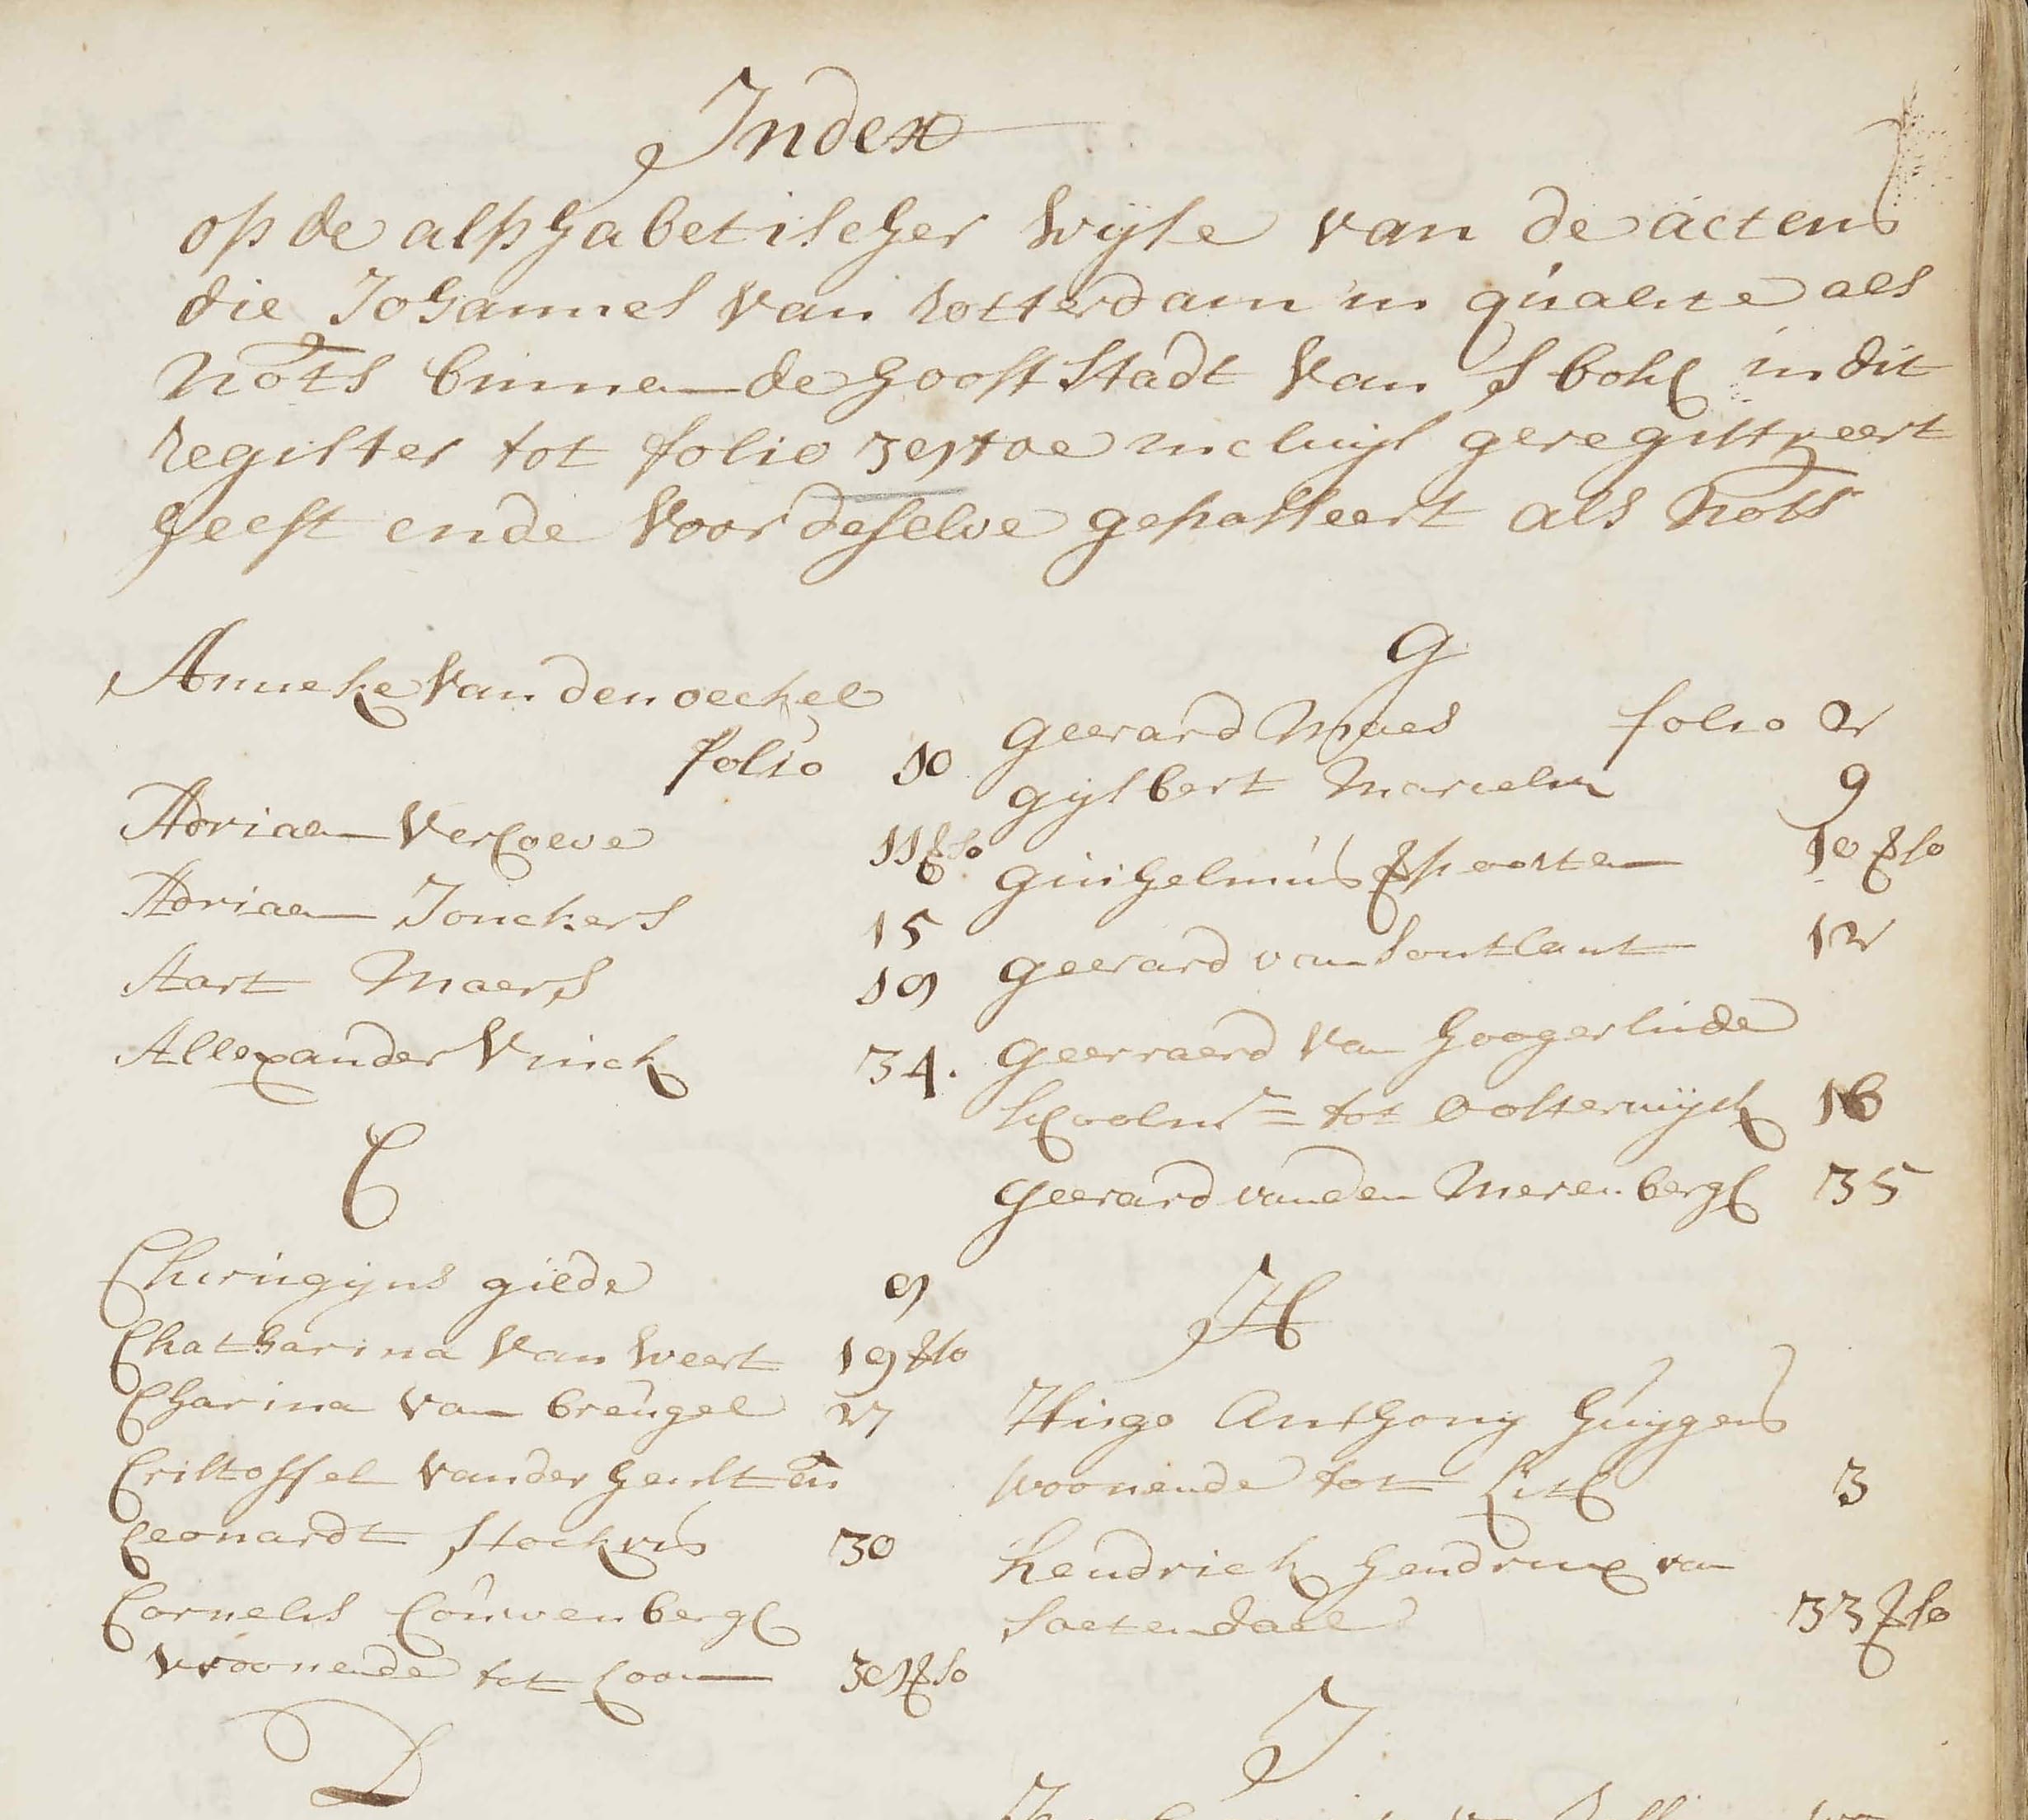 Index
op de alphabetischer wijse van de actens
die Johannes van rotterdam in qualite als
nots binnen de hooftstadt van s bosch in dit
register tot folio 39 toe incluijs geregistreert
heeft ende voor deselve gepasseert als nots
Anneke van den oeckel
folio 10
Adriaen Verhoeve 11 vso
Adriaen Jonckers 15
Aart Maers 19
Allexander Vinck 34.
C
Chirugijns gilde 9
Chatharina van weert 19 vso
Charina van breugel 27
Cristoffel vander henst en
Leonardt Stockvis 30
Cornelis Couwenbergh
woonende tot Loon 39 vso
D
G
geerard Maes folio 2
gijsbert Marcelis 9
guihelmus 10 vso
geerard van Soutlant 12
geerraerd van hoogerlinde
schoolmr = tot oosterwijck 16
geerard vanden Merenbergh 35
H
Hugo Anthony huijgens
woonende tot Lith 3
hendrick hendricx van
Soetendael 33 vso
J